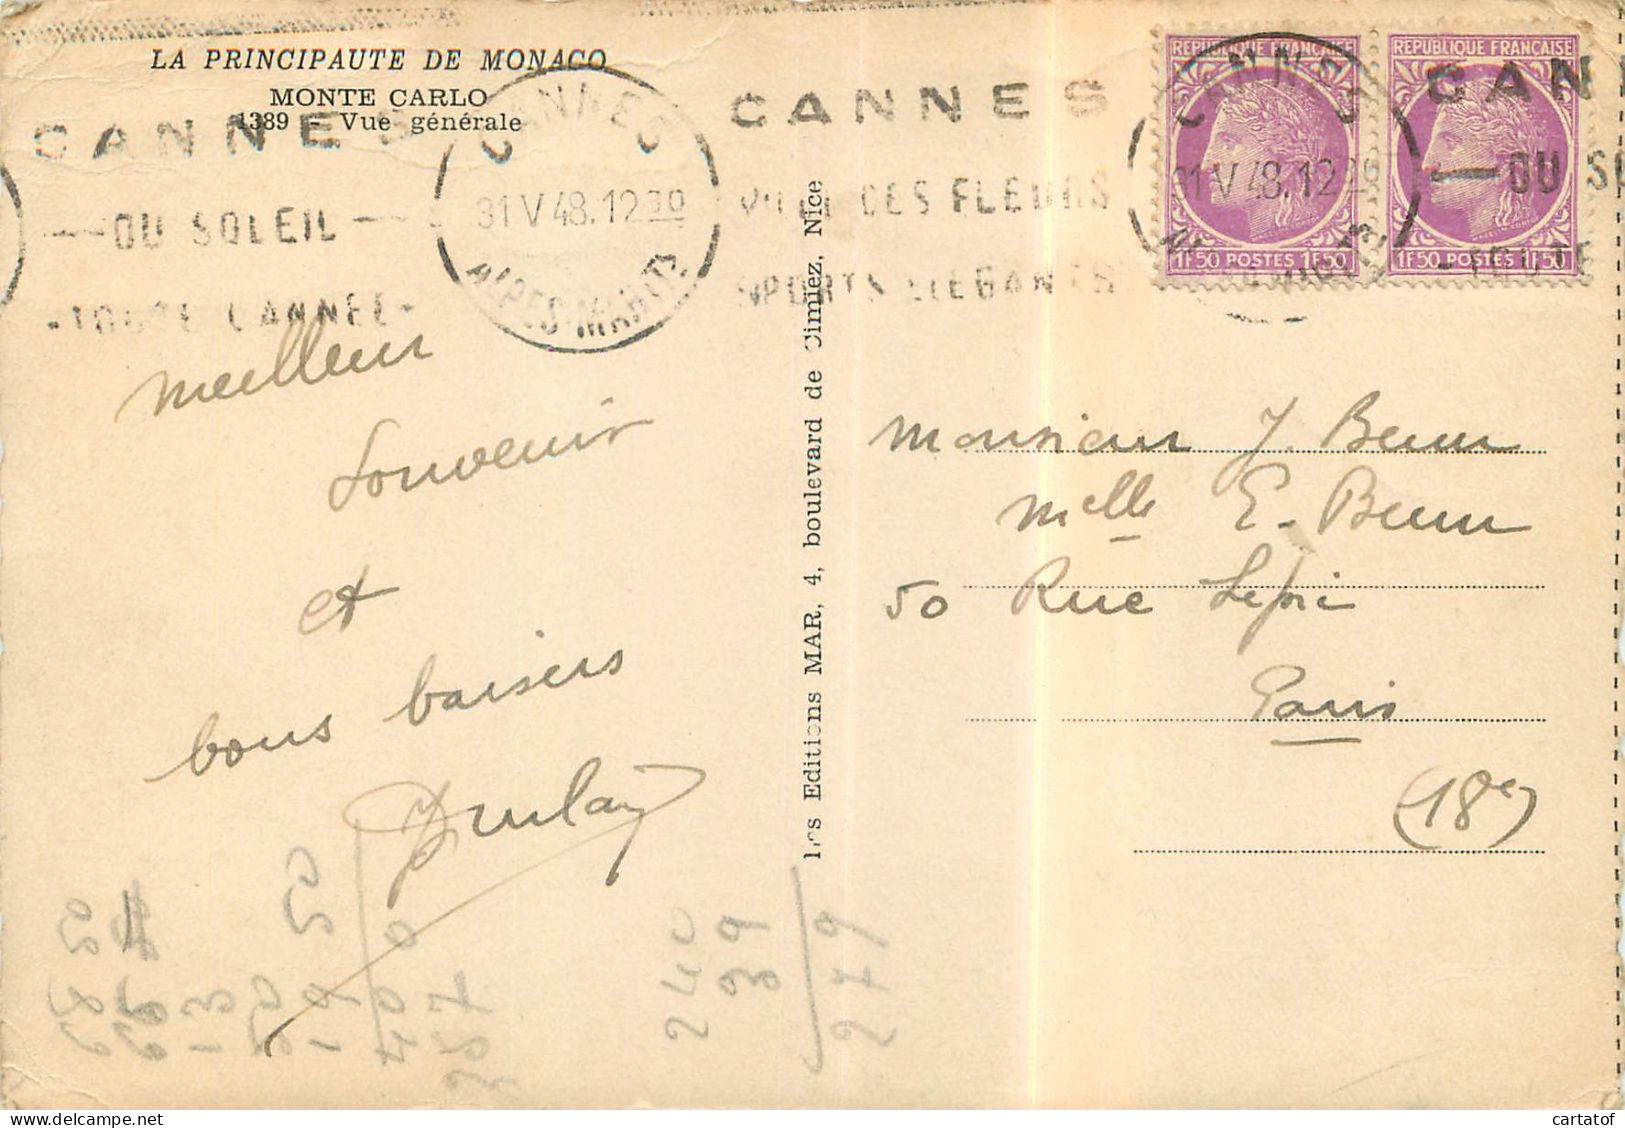 LA PRINCIPAUTE DE MONACO
MONTE CARLO
1389 - Vue générale
CANNES
DU SOLEIL
TOUTE L'ANNÉE
CANNES
31 V 48. 12 30
ALPES-MARITI
CANNES
VILLE DES FLEURS
SPORTS ELEGANTS
REPUBLIQUE FRANÇAISE
1F50 POSTES 1F50
REPUBLIQUE FRANÇAISE
1F50 POSTES 1F50
CANNES
31 V 48. 12
CAN
DU SO
TOUTE
meilleur
souvenir
et
bons baisers
Les Editions MAR, 4, boulevard de Cimiez, Nice
Monsieur J.
Melle E.
50 Rue Lepic
Paris
(18e)
240
39
279
cartatof